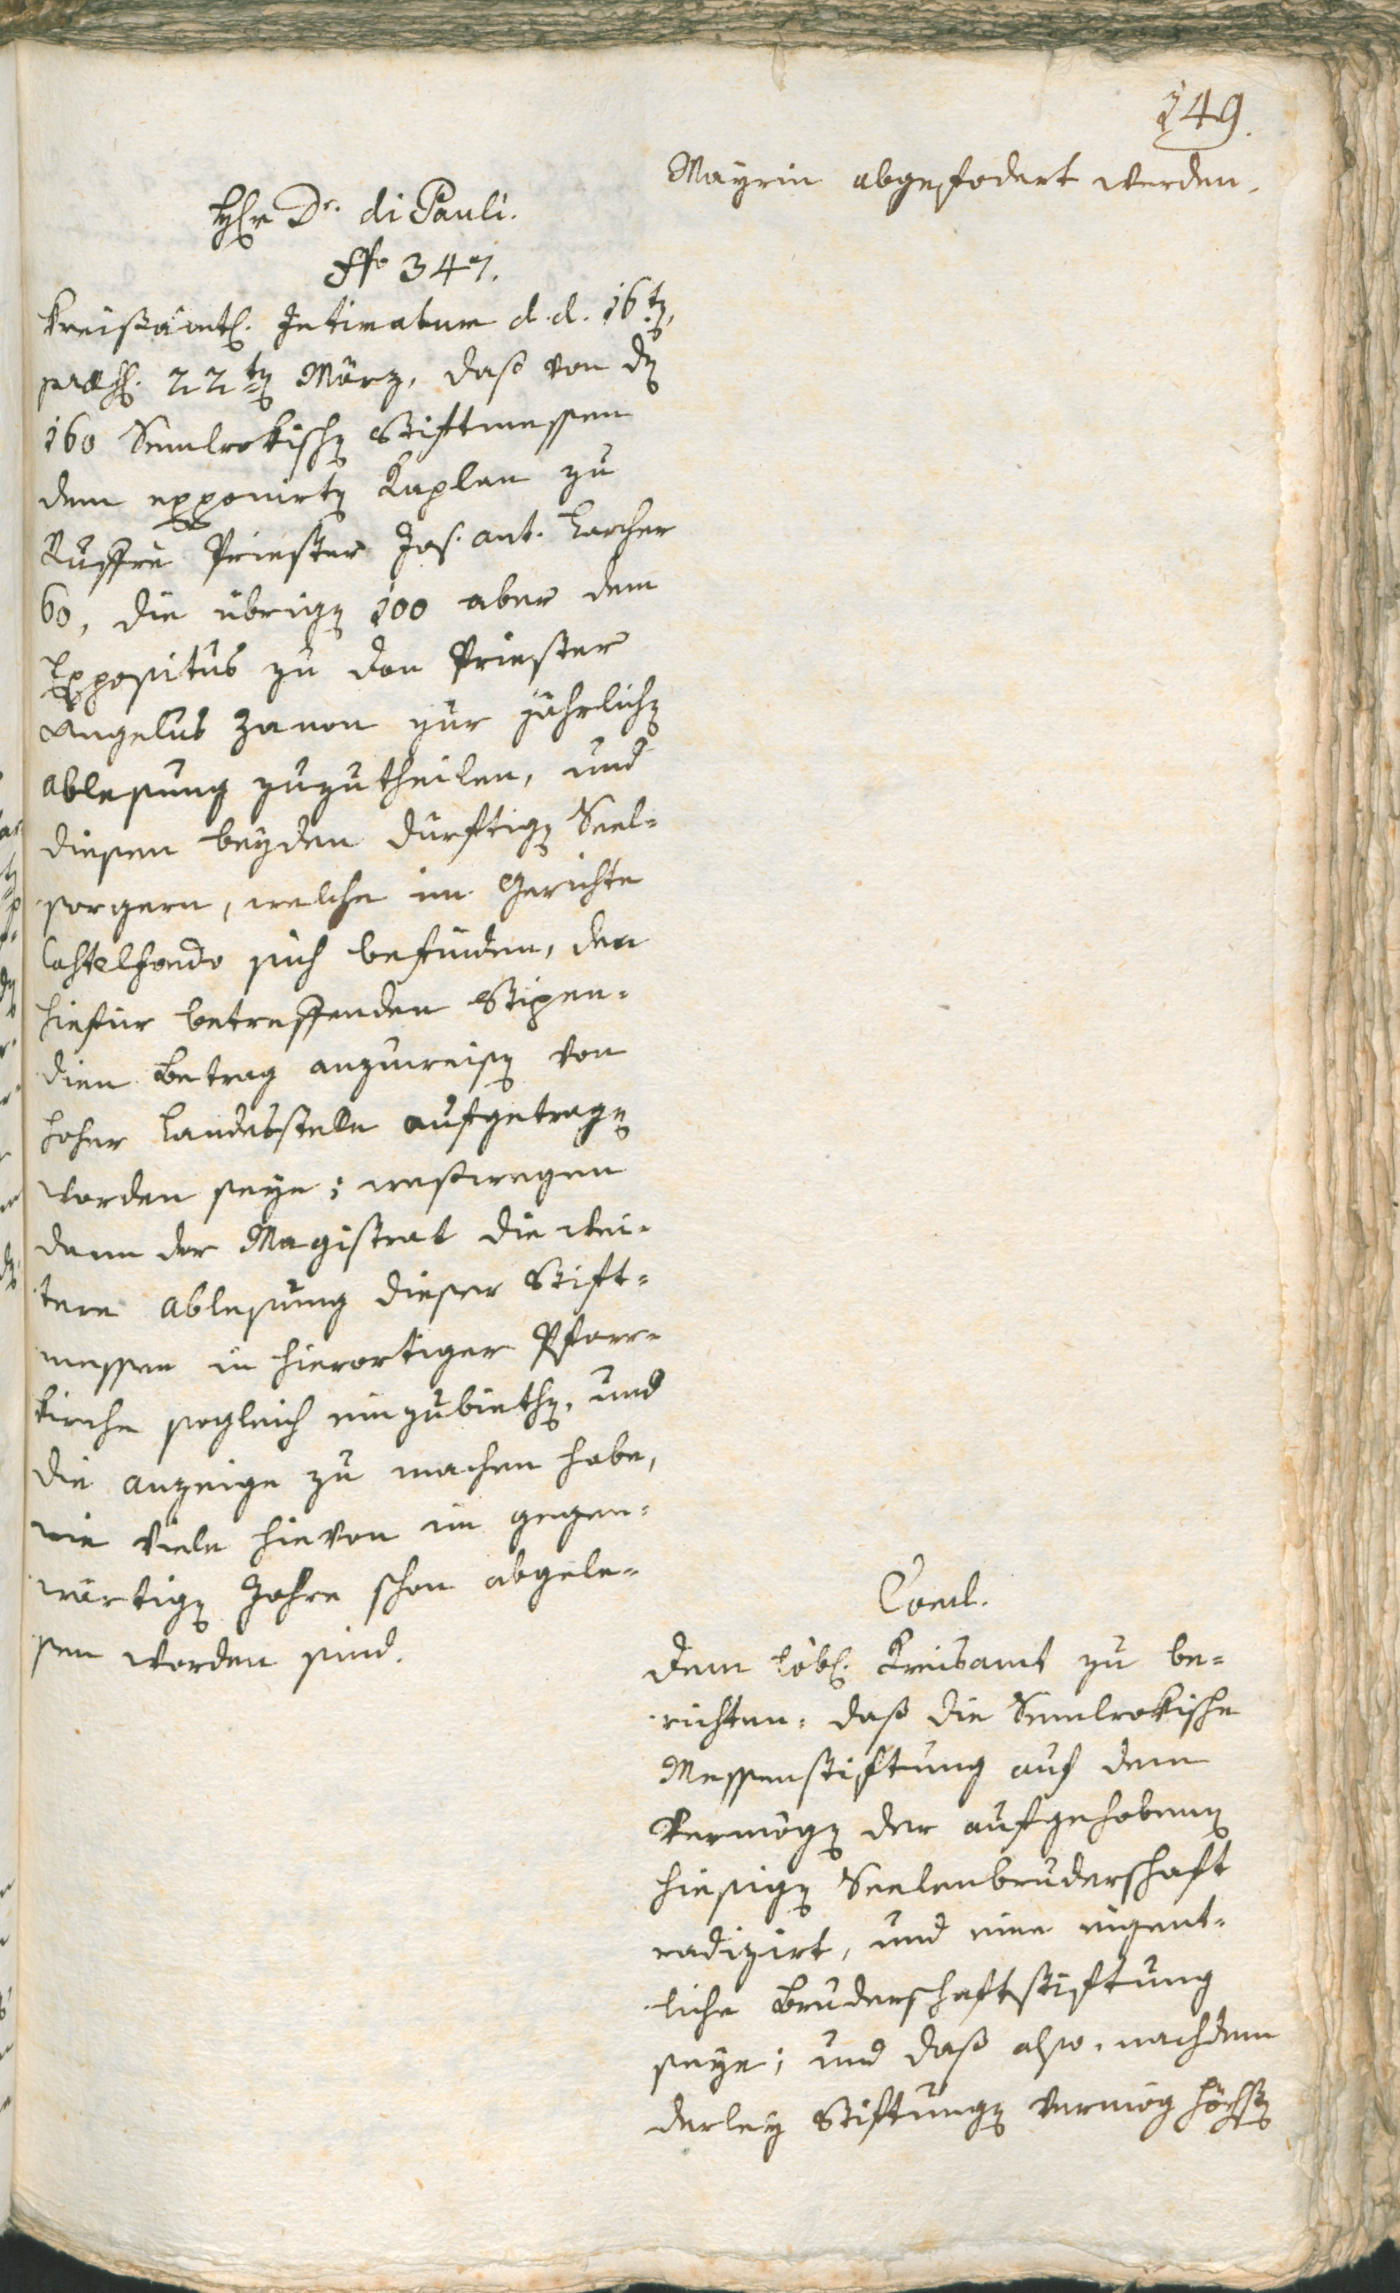 149.
Mayrin abgefodert werden.
Hr Dr. di Pauli.
No 347.
Kreisämtl. Intimatum d. d. 16tn,
præs. 22tn März, daß von dn
160 Semlrokischn Stiftmessen
dem exponirtn Kaplan zu
Ruffrè Priester Jos. ant. Larcher
60, die übrign 100 aber dem
Expositus zu Don Priester
Angelus Zanon zur jährlichn
ablesung zuzutheilen, und
diesen beyden dürftign Seel-
sorgern, welche im Gerichte
Castelfondo sich befinden, den
hiefür betreffenden Stipen-
dien Betrag anzuweisn von
hoher Landesstelle aufgetragn
worden seye; weßwegen
dann der Magistrat die wei-
tere ablesung dieser Stift-
messen in hierortiger Pfarr-
kirche sogleich einzubiethn, und
die anzeige zu machen habe,
wie viele hievon im gegen-
wärtign Jahre schon abgele-
sen worden sind.
Concl.
Dem löbl. Kreisamt zu be-
richten, daß die Semlrokische
Messenstiftung auf dem
Vermögn der aufgehobenen
hiesign Seelenbruderschaft
radizirt, und eine eigent-
liche Bruderschaftstiftung
seye; und daß also, nachdem
derley Stiftungn vermög höchstn